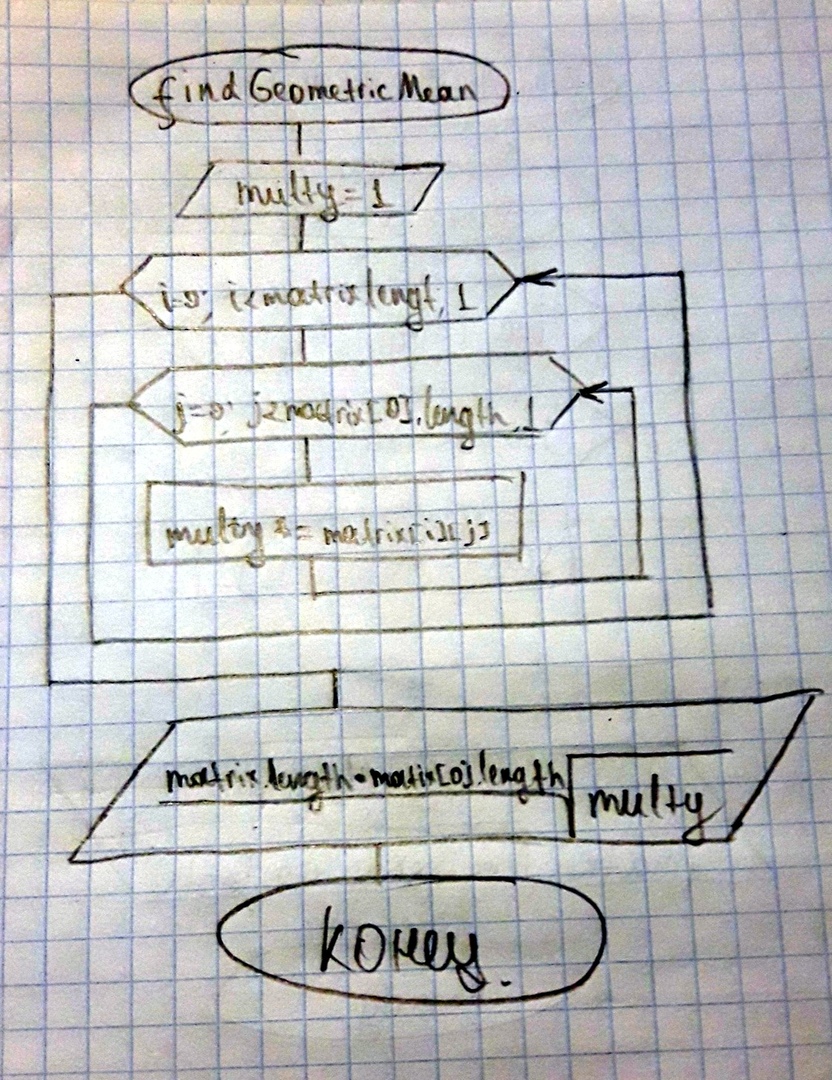 find Geometric Mean
multy = 1
i=0; i<matrix.lengt, 1
j=0; j<matrix[0].length, 1
multy *= matrix[i][j]
matrix.length * matix[0].length √multy
конец.